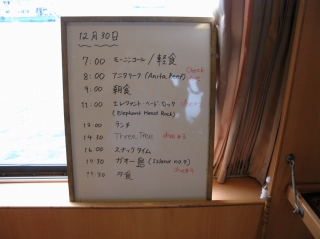 12月30日
7:00 モーニングコール/軽食
8:00 アニタリーフ (Anita Reef) Check
9:00 朝食
11:00 エレファント・ヘッド・ロック
(Elephant Head Rock)
12:00 ランチ
14:30 Three Trees dive #3
16:00 スナックタイム
17:30 ガオー島 (Island No.9)
19:30 夕食